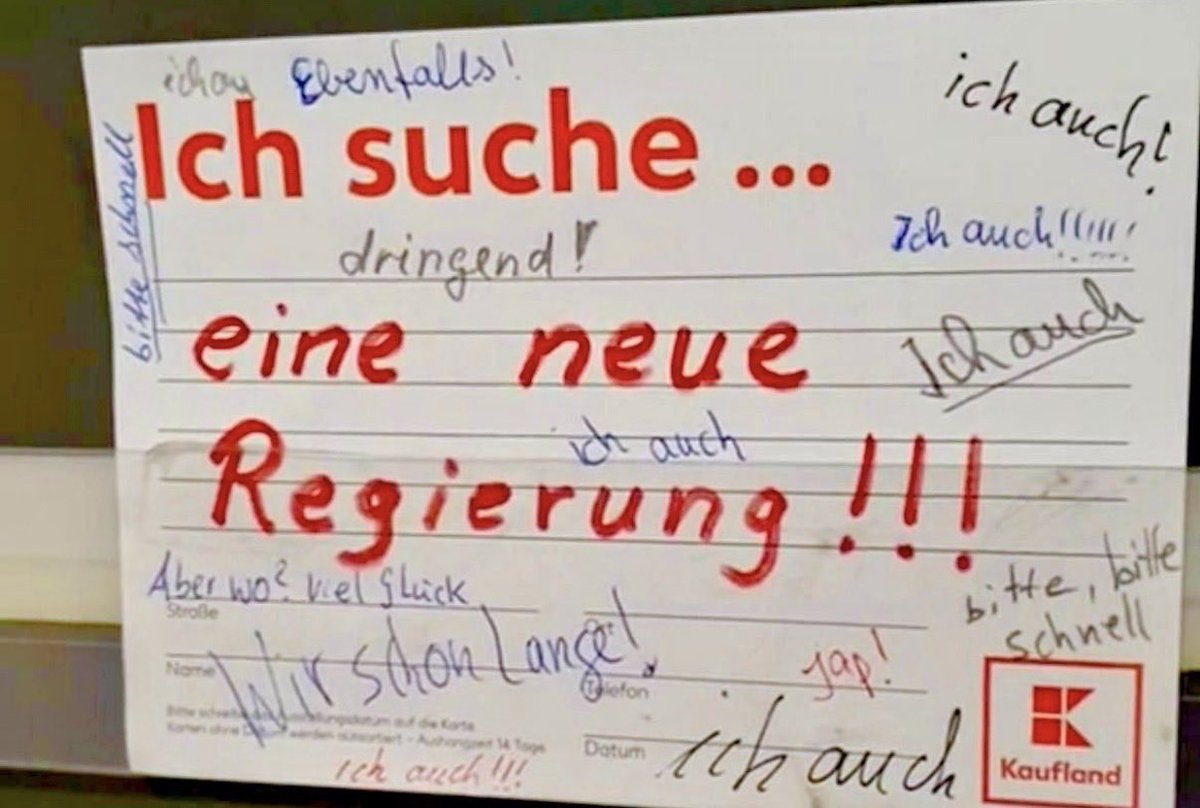 Ebenfalls!
ich auch!
Ich suche ...
bitte schnell
Ich auch!!!!!!!
dringend!
Ich auch
eine neue
ich auch
Regierung !!!
bitte, bitte
schnell
Aber wo? Viel Glück
Straße
Wir schon Lange!
jap!
Name
Telefon
Bitte auf die Karte
Karten ohne werden aussortiert - Aushangzeit 14 Tage
Datum
ich auch
ich auch!!!
Kaufland